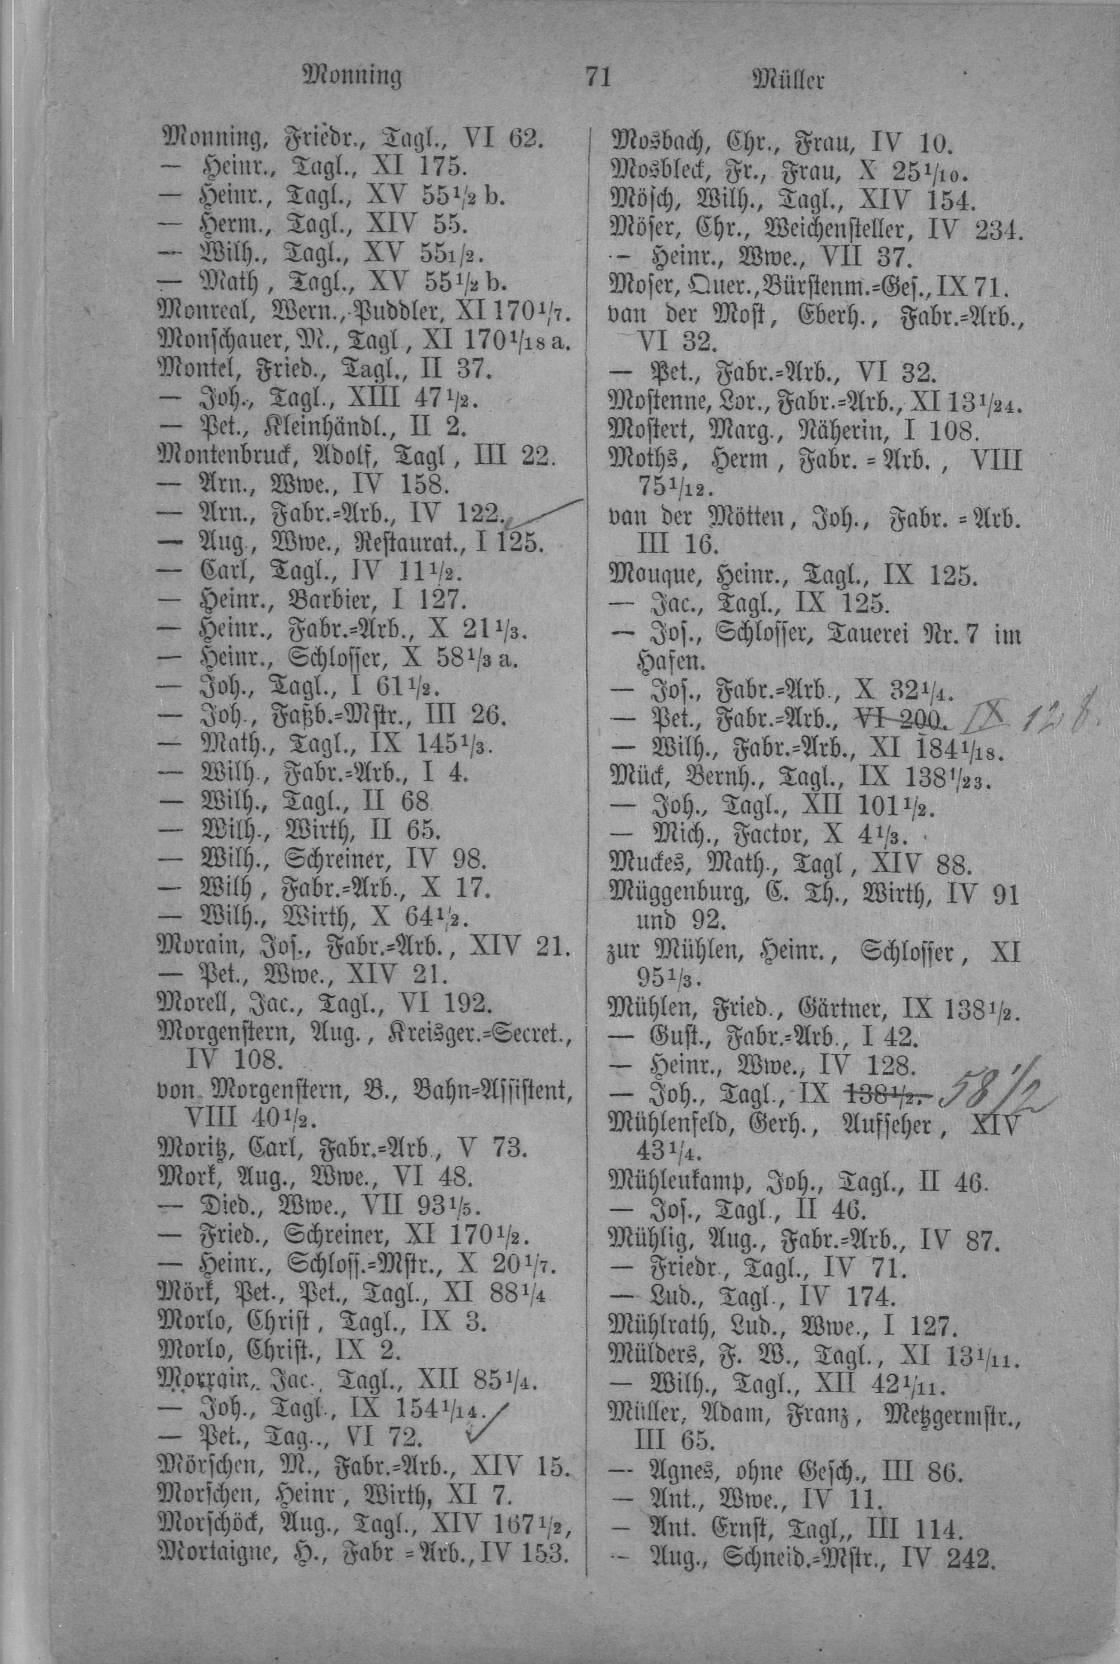 Monning 71 Müller
Monning, Friedr., Tagl., VI 62.
— Heinr., Tagl., XI 175.
— Heinr., Tagl., XV 55 1/2 b.
— Herm., Tagl., XIV 55.
— Wilh., Tagl., XV 55 1/2.
— Math , Tagl., XV 55 1/2 b.
Monreal, Wern., Puddler, XI 170 1/7.
Monschauer, M., Tagl , XI 170 1/18 a.
Montel, Fried., Tagl., II 37.
— Joh., Tagl., XIII 47 1/2.
— Pet., Kleinhändl., II 2.
Montenbruck, Adolf, Tagl , III 22.
— Arn., Wwe., IV 158.
— Arn., Fabr.=Arb., IV 122.
— Aug., Wwe., Restaurat., I 125.
— Carl, Tagl., IV 11 1/2.
— Heinr., Barbier, I 127.
— Heinr., Fabr.=Arb., X 21 1/3.
— Heinr., Schlosser, X 58 1/3 a.
— Joh., Tagl., I 61 1/2.
— Joh., Faßb.=Mstr., III 26.
— Math., Tagl., IX 145 1/3.
— Wilh., Fabr.=Arb., I 4.
— Wilh., Tagl., II 68
— Wilh., Wirth, II 65.
— Wilh., Schreiner, IV 98.
— Wilh , Fabr.=Arb., X 17.
— Wilh., Wirth, X 64 1/2.
Morain, Jos., Fabr.=Arb., XIV 21.
— Pet., Wwe., XIV 21.
Morell, Jac., Tagl., VI 192.
Morgenstern, Aug., Kreisger.=Secret.,
IV 108.
von Morgenstern, B., Bahn=Assistent,
VIII 40 1/2.
Moritz, Carl, Fabr.=Arb., V 73.
Mork, Aug., Wwe., VI 48.
— Died., Wwe., VII 93 1/5.
— Fried., Schreiner, XI 170 1/2.
— Heinr., Schloss.=Mstr., X 20 1/7.
Mörk, Pet., Pet., Tagl., XI 88 1/4
Morlo, Christ , Tagl., IX 3.
Morlo, Christ., IX 2.
Morrain, Jac., Tagl., XII 85 1/4.
— Joh., Tagl., IX 154 1/14.
— Pet., Tag.., VI 72.
Mörschen, M., Fabr.=Arb., XIV 15.
Morschen, Heinr , Wirth, XI 7.
Morschöck, Aug., Tagl., XIV 167 1/2,
Mortaigne, H., Fabr =Arb., IV 153.
Mosbach, Chr., Frau, IV 10.
Mosbleck, Fr., Frau, X 25 1/10.
Mösch, Wilh., Tagl., XIV 154.
Möser, Chr., Weichensteller, IV 234.
— Heinr., Wwe., VII 37.
Moser, Quer., Bürstenm.=Ges., IX 71.
van der Most, Eberh., Fabr.=Arb.,
VI 32.
— Pet., Fabr.=Arb., VI 32.
Mostenne, Lor., Fabr.=Arb., XI 13 1/24.
Mostert, Marg., Näherin, I 108.
Moths, Herm , Fabr.=Arb., VIII
75 1/12.
van der Mötten, Joh., Fabr.=Arb.
III 16.
Mouque, Heinr., Tagl., IX 125.
— Jac., Tagl., IX 125.
— Jos., Schlosser, Tauerei Nr. 7 im
Hafen.
— Jos., Fabr.=Arb., X 32 1/4.
— Pet., Fabr.=Arb., VI 200. IX 128.
— Wilh., Fabr.=Arb., XI 184 1/18.
Mück, Bernh., Tagl., IX 138 1/23.
— Joh., Tagl., XII 101 1/2.
— Mich., Factor, X 4 1/3.
Muckes, Math., Tagl , XIV 88.
Müggenburg, C. Th., Wirth, IV 91
und 92.
zur Mühlen, Heinr., Schlosser, XI
95 1/3.
Mühlen, Fried., Gärtner, IX 138 1/2.
— Gust., Fabr.=Arb., I 42.
— Heinr., Wwe., IV 128.
— Joh., Tagl., IX 138 1/2. 58 1/2
Mühlenfeld, Gerh., Aufseher, XIV
43 1/4.
Mühlenkamp, Joh., Tagl., II 46.
— Jos., Tagl., II 46.
Mühlig, Aug., Fabr.=Arb., IV 87.
— Friedr., Tagl., IV 71.
— Lud., Tagl., IV 174.
Mühlrath, Lud., Wwe., I 127.
Mülders, F. W., Tagl., XI 13 1/11.
— Wilh., Tagl., XII 42 1/11.
Müller, Adam, Franz, Metzgermstr.,
III 65.
— Agnes, ohne Gesch., III 86.
— Ant., Wwe., IV 11.
— Ant. Ernst, Tagl,, III 114.
— Aug., Schneid.=Mstr., IV 242.